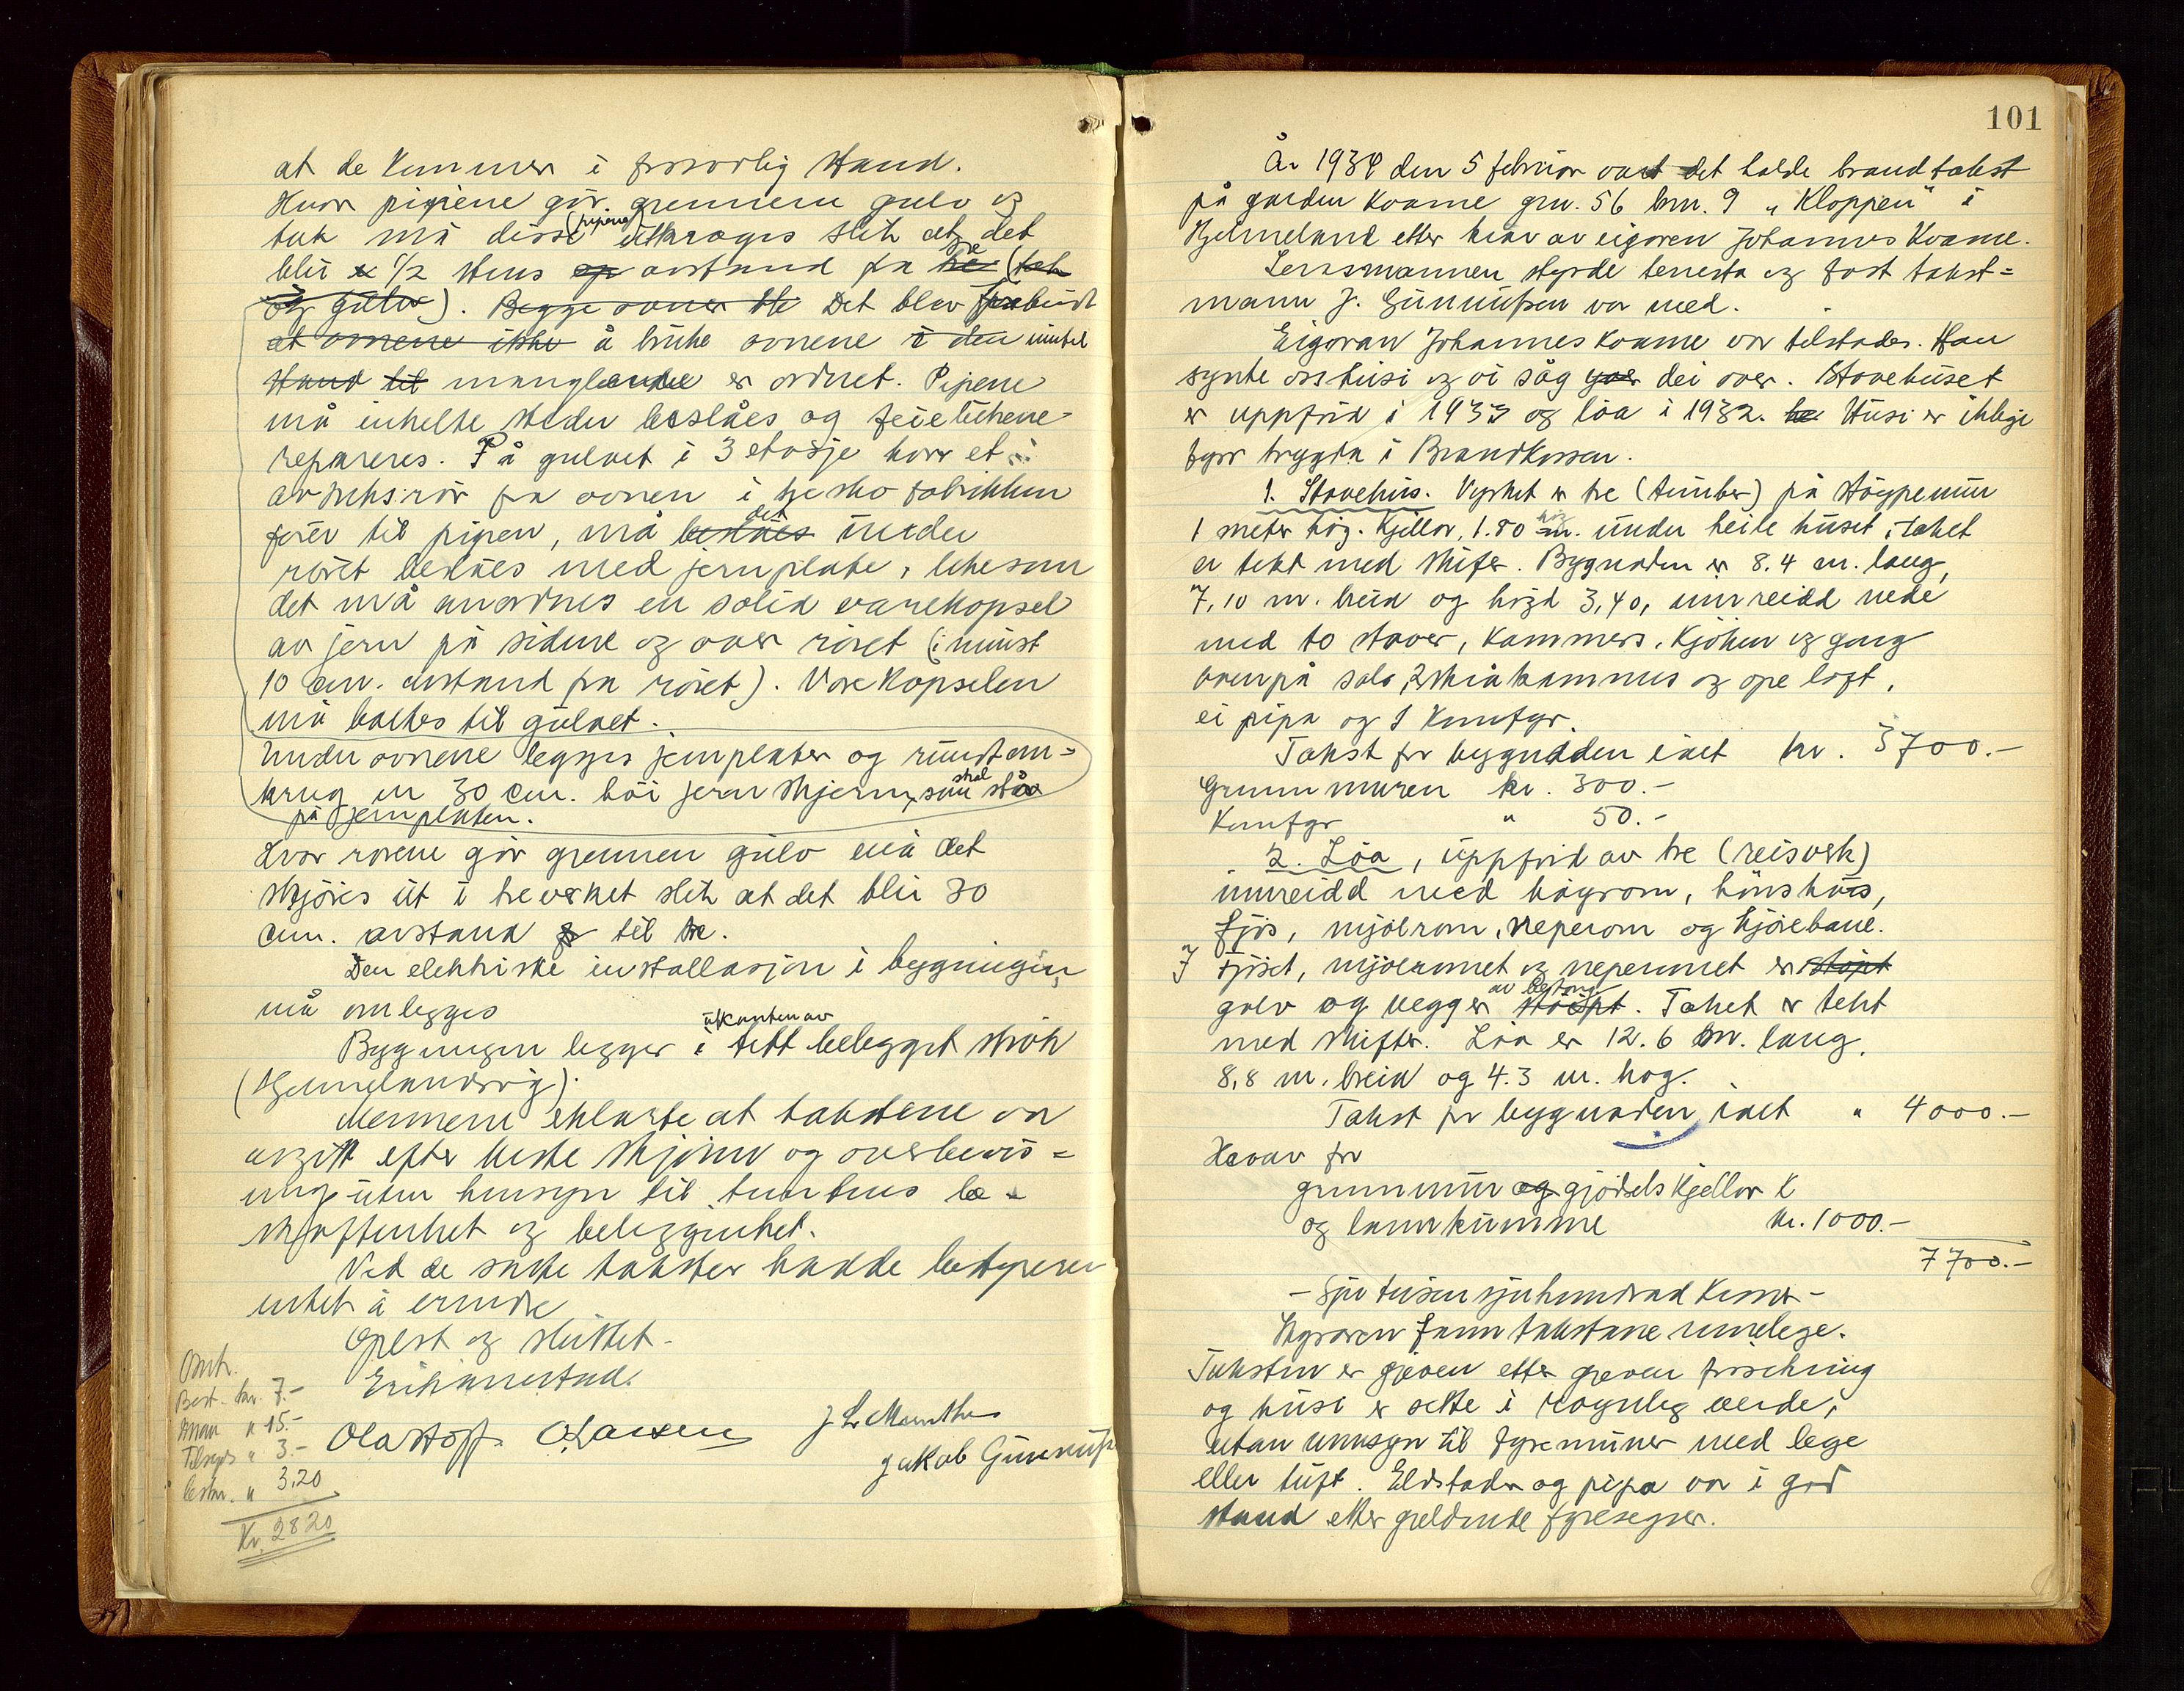 at de kommer i forsvarlig stand.
Hvor pipene går gjennem gulv og
tak må disse (pipene) utkrages slik at det
blir 1/2 stens avstand fra tre (tak
og gulv). Begge ovner Det blev forbudt
at ovnene ikke å bruke ovnene i den inntil
stand til manglende er ordnet. Pipene
må enkelte steder beslåes og feielukene
repareres. På gulvet i 3 etasje hvor et
avtrekksrör fra ovnen i treskofabrikken
förer til pipen, må det under
röret beklæes med jernplate, likesom
det må anordnes en solid varekapsel
av jern på sidene og over röret (minst
10 cm. avstand fra röret). Varekapselen
må boltes til gulvet.
Under ovnene legges jernplater og rundtom-
kring en 30 cm. höi jernskjerm, som skal stå
på jernplaten.
Hvor rörene går gjennem gulv må det
skjæres ut i treverket slik at det blir 30
cm. avstand til tre.
Den elektriske installasjon i bygningen
må omlegges
Bygningen ligger i utkanten av tett bebygget strök
(Hjelmelandsvåg).
Mennene erklærte at takstene var
avgitt efter beste skjönn og overbevis-
ning uten hensyn til tomtens be-
skaffenhet og beliggenhet.
Ved de satte takster hadde bestyreren
intet å erindre
Oplest og sluttet.
Erik Finnestad.
Ola Hoff. O. Larsen J L Munthe
Jakob Gunnufsen
Omk.
Best. kr. 7.-
Mann " 15.-
Tilsyns " 3.-
" 3,20
Kr. 28 20
101
År 1934 den 5 februar vart det halde brandtakst
på garden Kvame gnr. 56 bnr. 9 „Kloppen" i
Hjelmeland etter krav av eigaren Johannes Kvame.
Lensmannen styrde tenesta og fast takst-
mann J. Gunnufsen var med.
Eigaren Johannes Kvame var tilstades. Han
synte oss husi og vi såg dei over. Stovehuset
er uppförd i 1933 og löa i 1932. Husi er ikkje
fyrr trygda i Brandkassen.
1. Stovehus. Vyrket er tre (timber) på stöypemur
1 meter hög. Kjellar, 1.80 m. hög under heile huset, taket
er tekt med skifer. Bygnaden er 8.4 m. lang,
7,10 m. breid og högd 3,40, innreidd nede
med to stover, kammers, kjöken og gang
ovenpå sal, 2 skråkammers og ope loft,
ei pipa og 1 komfyr.
Takst for bygnaden i alt kr. 3700.-
Grunnmuren kr. 300.-
Komfyr " 50.-
2. Löa, uppförd av tre (reisverk)
innreidd med höyrom, hönshus,
fjös, mjölrom, neperom og kjörebane.
I Fjöset, mjölromet og neperomet er støpt
golv og vegger av betong støypt. Taket er tekt
med skifer. Löa er 12.6 m. lang,
8,8 m. breid og 4.3 m. hög.
Takst for bygnaden i alt " 4000.-
Herav for
grunnmur og gjödselskjellar
og landkumme kr. 1000.-
7700.-
- Sju tusen sjuhundrad kroner -
Eigaren fann takstane rimelege.
Taksten er gjeven etter gjeven forsikring
og husi er sette i rögnleg verde,
utan umsyn til fyremuner med lege
eller tuft. Eldstader og pipa var i god
stand etter gjeldande fyresegner.